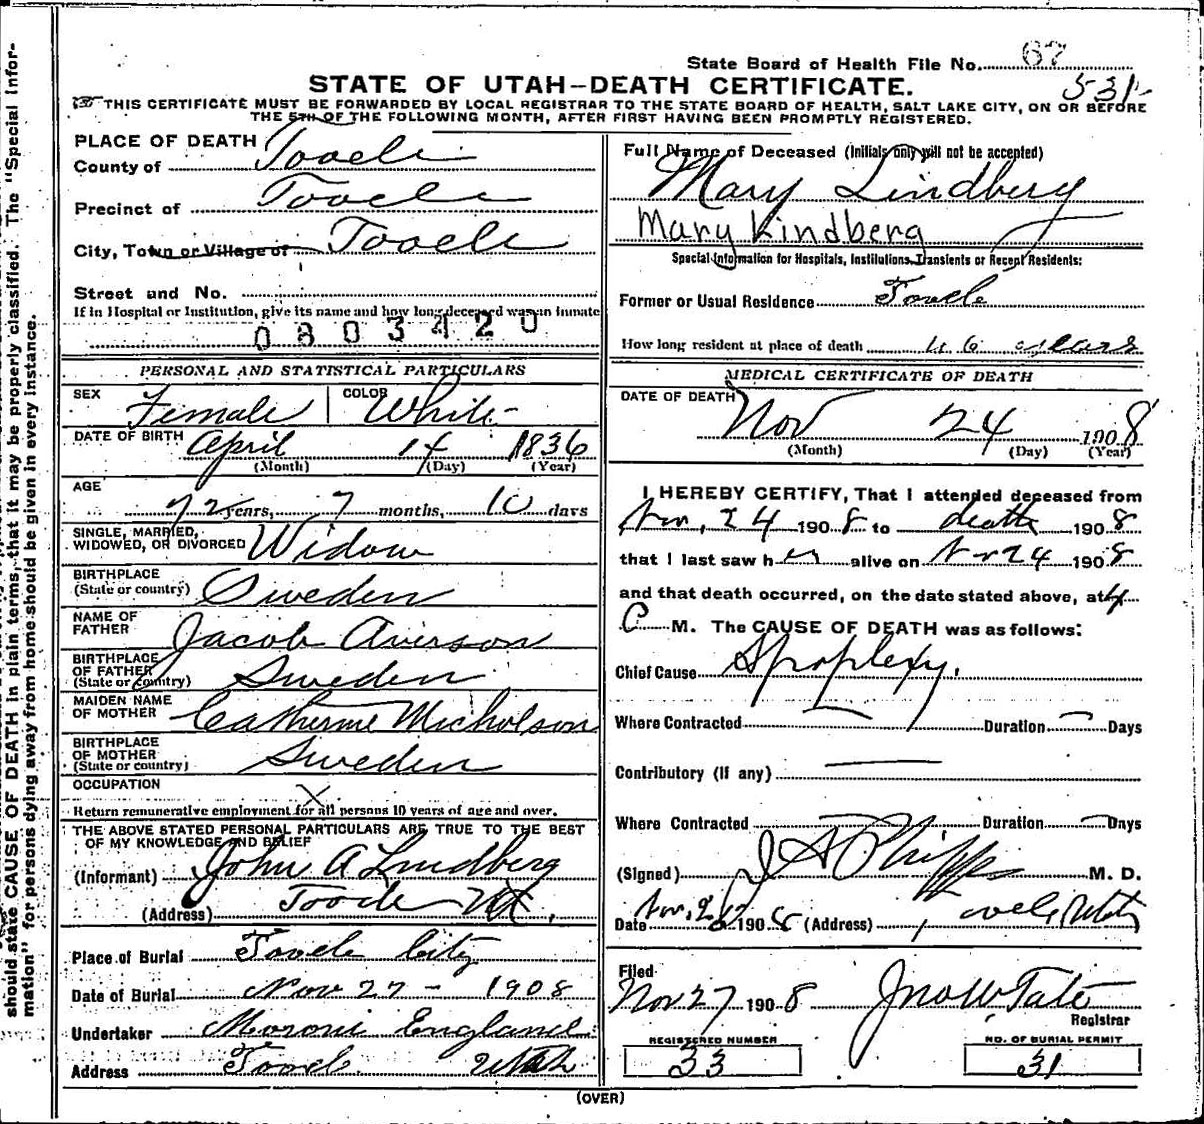 State Board of Health File No. 67
STATE OF UTAH—DEATH CERTIFICATE.
531
THIS CERTIFICATE MUST BE FORWARDED BY LOCAL REGISTRAR TO THE STATE BOARD OF HEALTH, SALT LAKE CITY, ON OR BEFORE
THE 5TH OF THE FOLLOWING MONTH, AFTER FIRST HAVING BEEN PROMPTLY REGISTERED.
PLACE OF DEATH
County of Tooele
Precinct of Tooele
City, Town or Village of Tooele
Street and No.
If in Hospital or Institution, give its name and how long deceased was an inmate
0803420
PERSONAL AND STATISTICAL PARTICULARS
SEX Female COLOR White
DATE OF BIRTH April 14 1836
(Month) (Day) (Year)
AGE
72 years, 7 months, 10 days
SINGLE, MARRIED,
WIDOWED, OR DIVORCED Widow
BIRTHPLACE
(State or country) Sweden
NAME OF
FATHER Jacob Averson
BIRTHPLACE
OF FATHER
(State or country) Sweden
MAIDEN NAME
OF MOTHER Catherine Micholson
BIRTHPLACE
OF MOTHER
(State or country) Sweden
OCCUPATION X
Return remunerative employment for all persons 10 years of age and over.
THE ABOVE STATED PERSONAL PARTICULARS ARE TRUE TO THE BEST
OF MY KNOWLEDGE AND BELIEF
(Informant) John A Lindberg
(Address) Tooele Ut.
Place of Burial Tooele City
Date of Burial Nov 27 - 1908
Undertaker Moroni England
Address Tooele Utah
Full Name of Deceased (Initials only will not be accepted)
Mary Lindberg
Mary Lindberg
Special Information for Hospitals, Institutions, Transients or Recent Residents:
Former or Usual Residence Tooele
How long resident at place of death 46 years
MEDICAL CERTIFICATE OF DEATH
DATE OF DEATH
Nov 24 1908
(Month) (Day) (Year)
I HEREBY CERTIFY, That I attended deceased from
Nov, 24 1908 to death 1908
that I last saw her alive on Nov 24 1908
and that death occurred, on the date stated above, at 4
M. The CAUSE OF DEATH was as follows:
Chief Cause Apoplexy.
Where Contracted Duration Days
Contributory (if any)
Where Contracted Duration Days
(Signed) J A Phipps M. D.
Date Nov, 26 1908 (Address) Tooele, Utah
Filed
Nov 27 1908 Jno W Tate
Registrar
REGISTERED NUMBER
33
NO. OF BURIAL PERMIT
31
(OVER)
should state CAUSE OF DEATH in plain terms, that it may be properly classified. The "Special Infor-
mation" for persons dying away from home should be given in every instance.